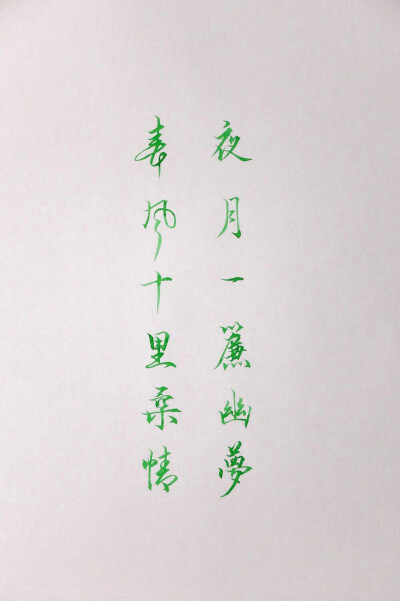 夜月一簾幽夢
春風十里柔情